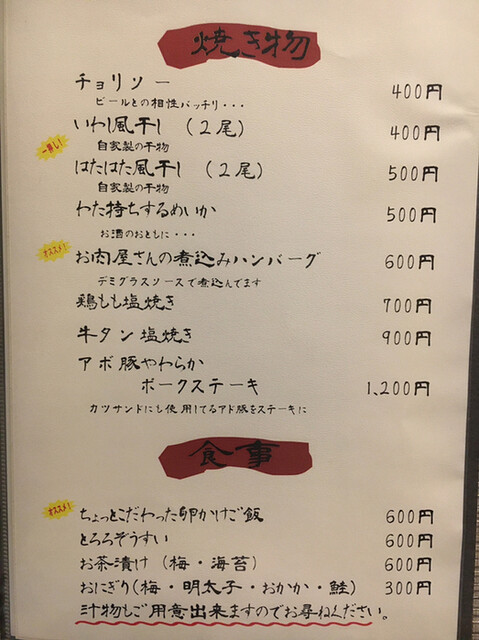 焼き物
チョリソー 400円
ビールとの相性バッチリ・・・
いわし風干し (2尾) 400円
一押し!
自家製の干物
はたはた風干し (2尾) 500円
自家製の干物
わた持ちするめいか 500円
お酒のおともに・・・
オススメ!
お肉屋さんの煮込みハンバーグ 600円
デミグラスソースで煮込んでます
鶏もも塩焼き 700円
牛タン塩焼き 900円
アボ豚やわらか
ポークステーキ 1,200円
カツサンドにも使用してるアド豚をステーキに
食事
オススメ!
ちょっとこだわった卵かけご飯 600円
とろろぞうすい 600円
お茶漬け (梅・海苔) 600円
おにぎり(梅・明太子・おかか・鮭) 300円
汁物もご用意出来ますのでお尋ねください。